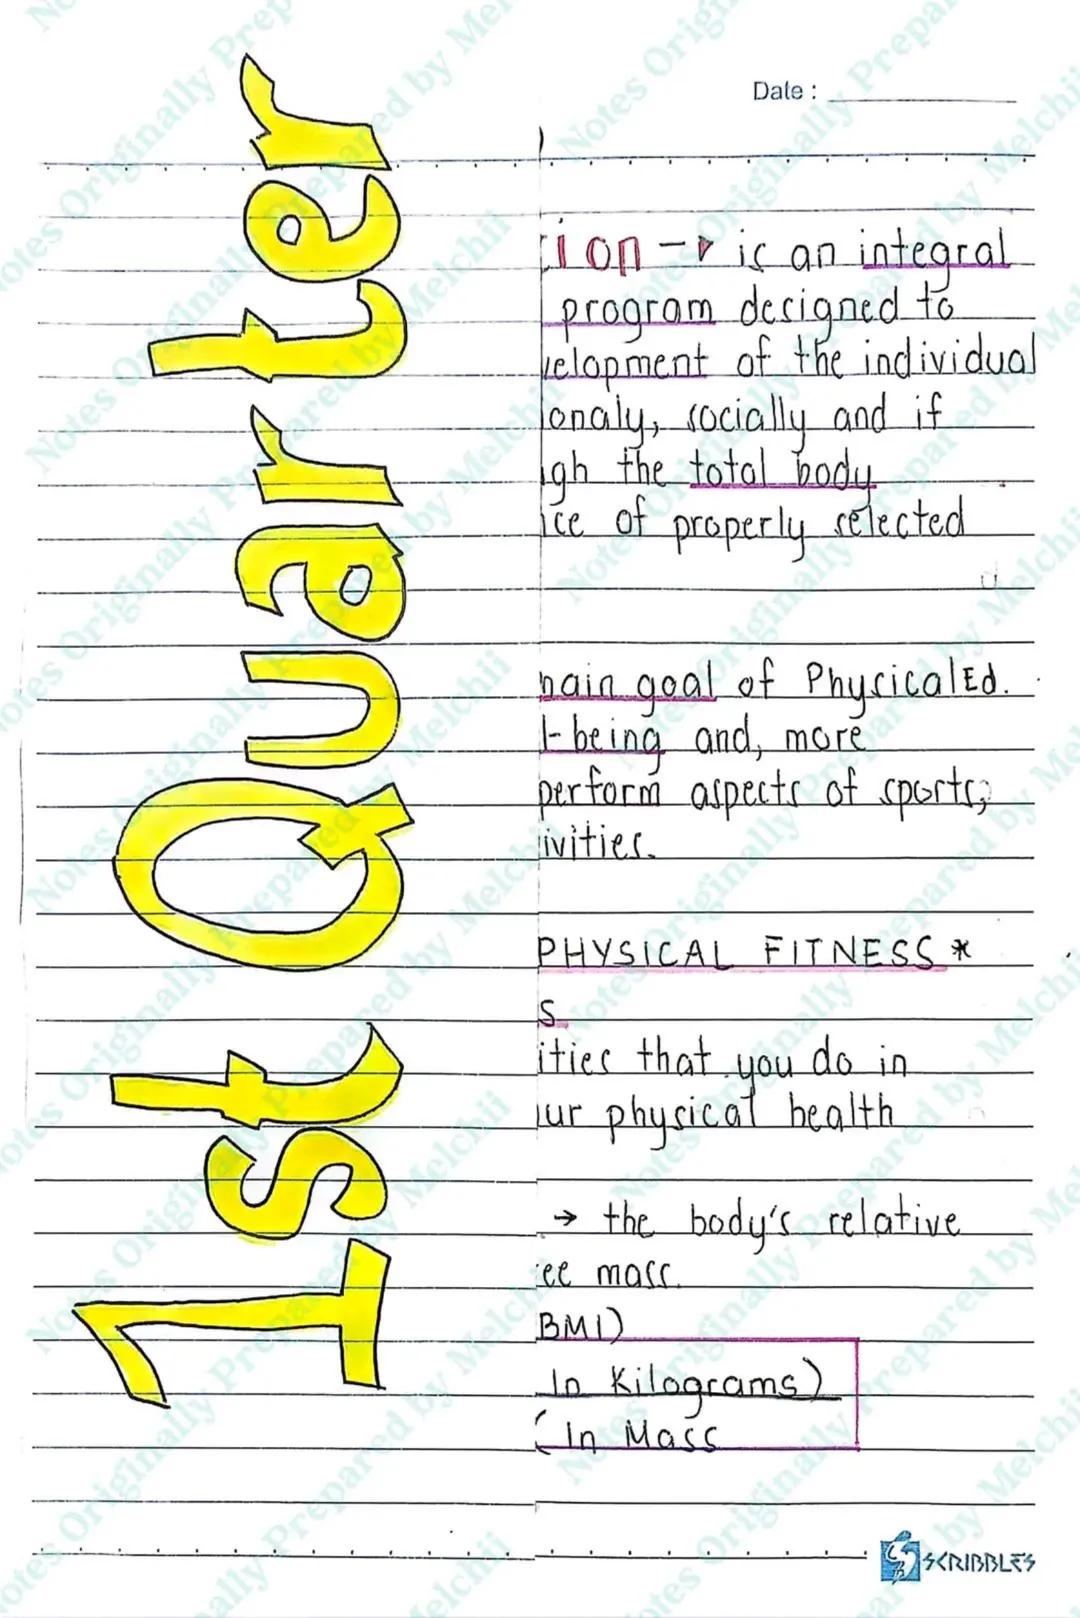 1st Quarter
Date :
ion → is an integral
program designed to
velopment of the individual
ionaly, socially and if
igh the total body
ice of properly selected
main goal of Physical Ed.
l-being and, more
perform aspects of sports,
ivities.
PHYSICAL FITNESS *
S
ities that you do in
ur physical health
→ the body's relative
ee mass.
BMI)
In Kilograms)
(In Mass
SCRIBBLES
Notes Originally Prepared by Melchii